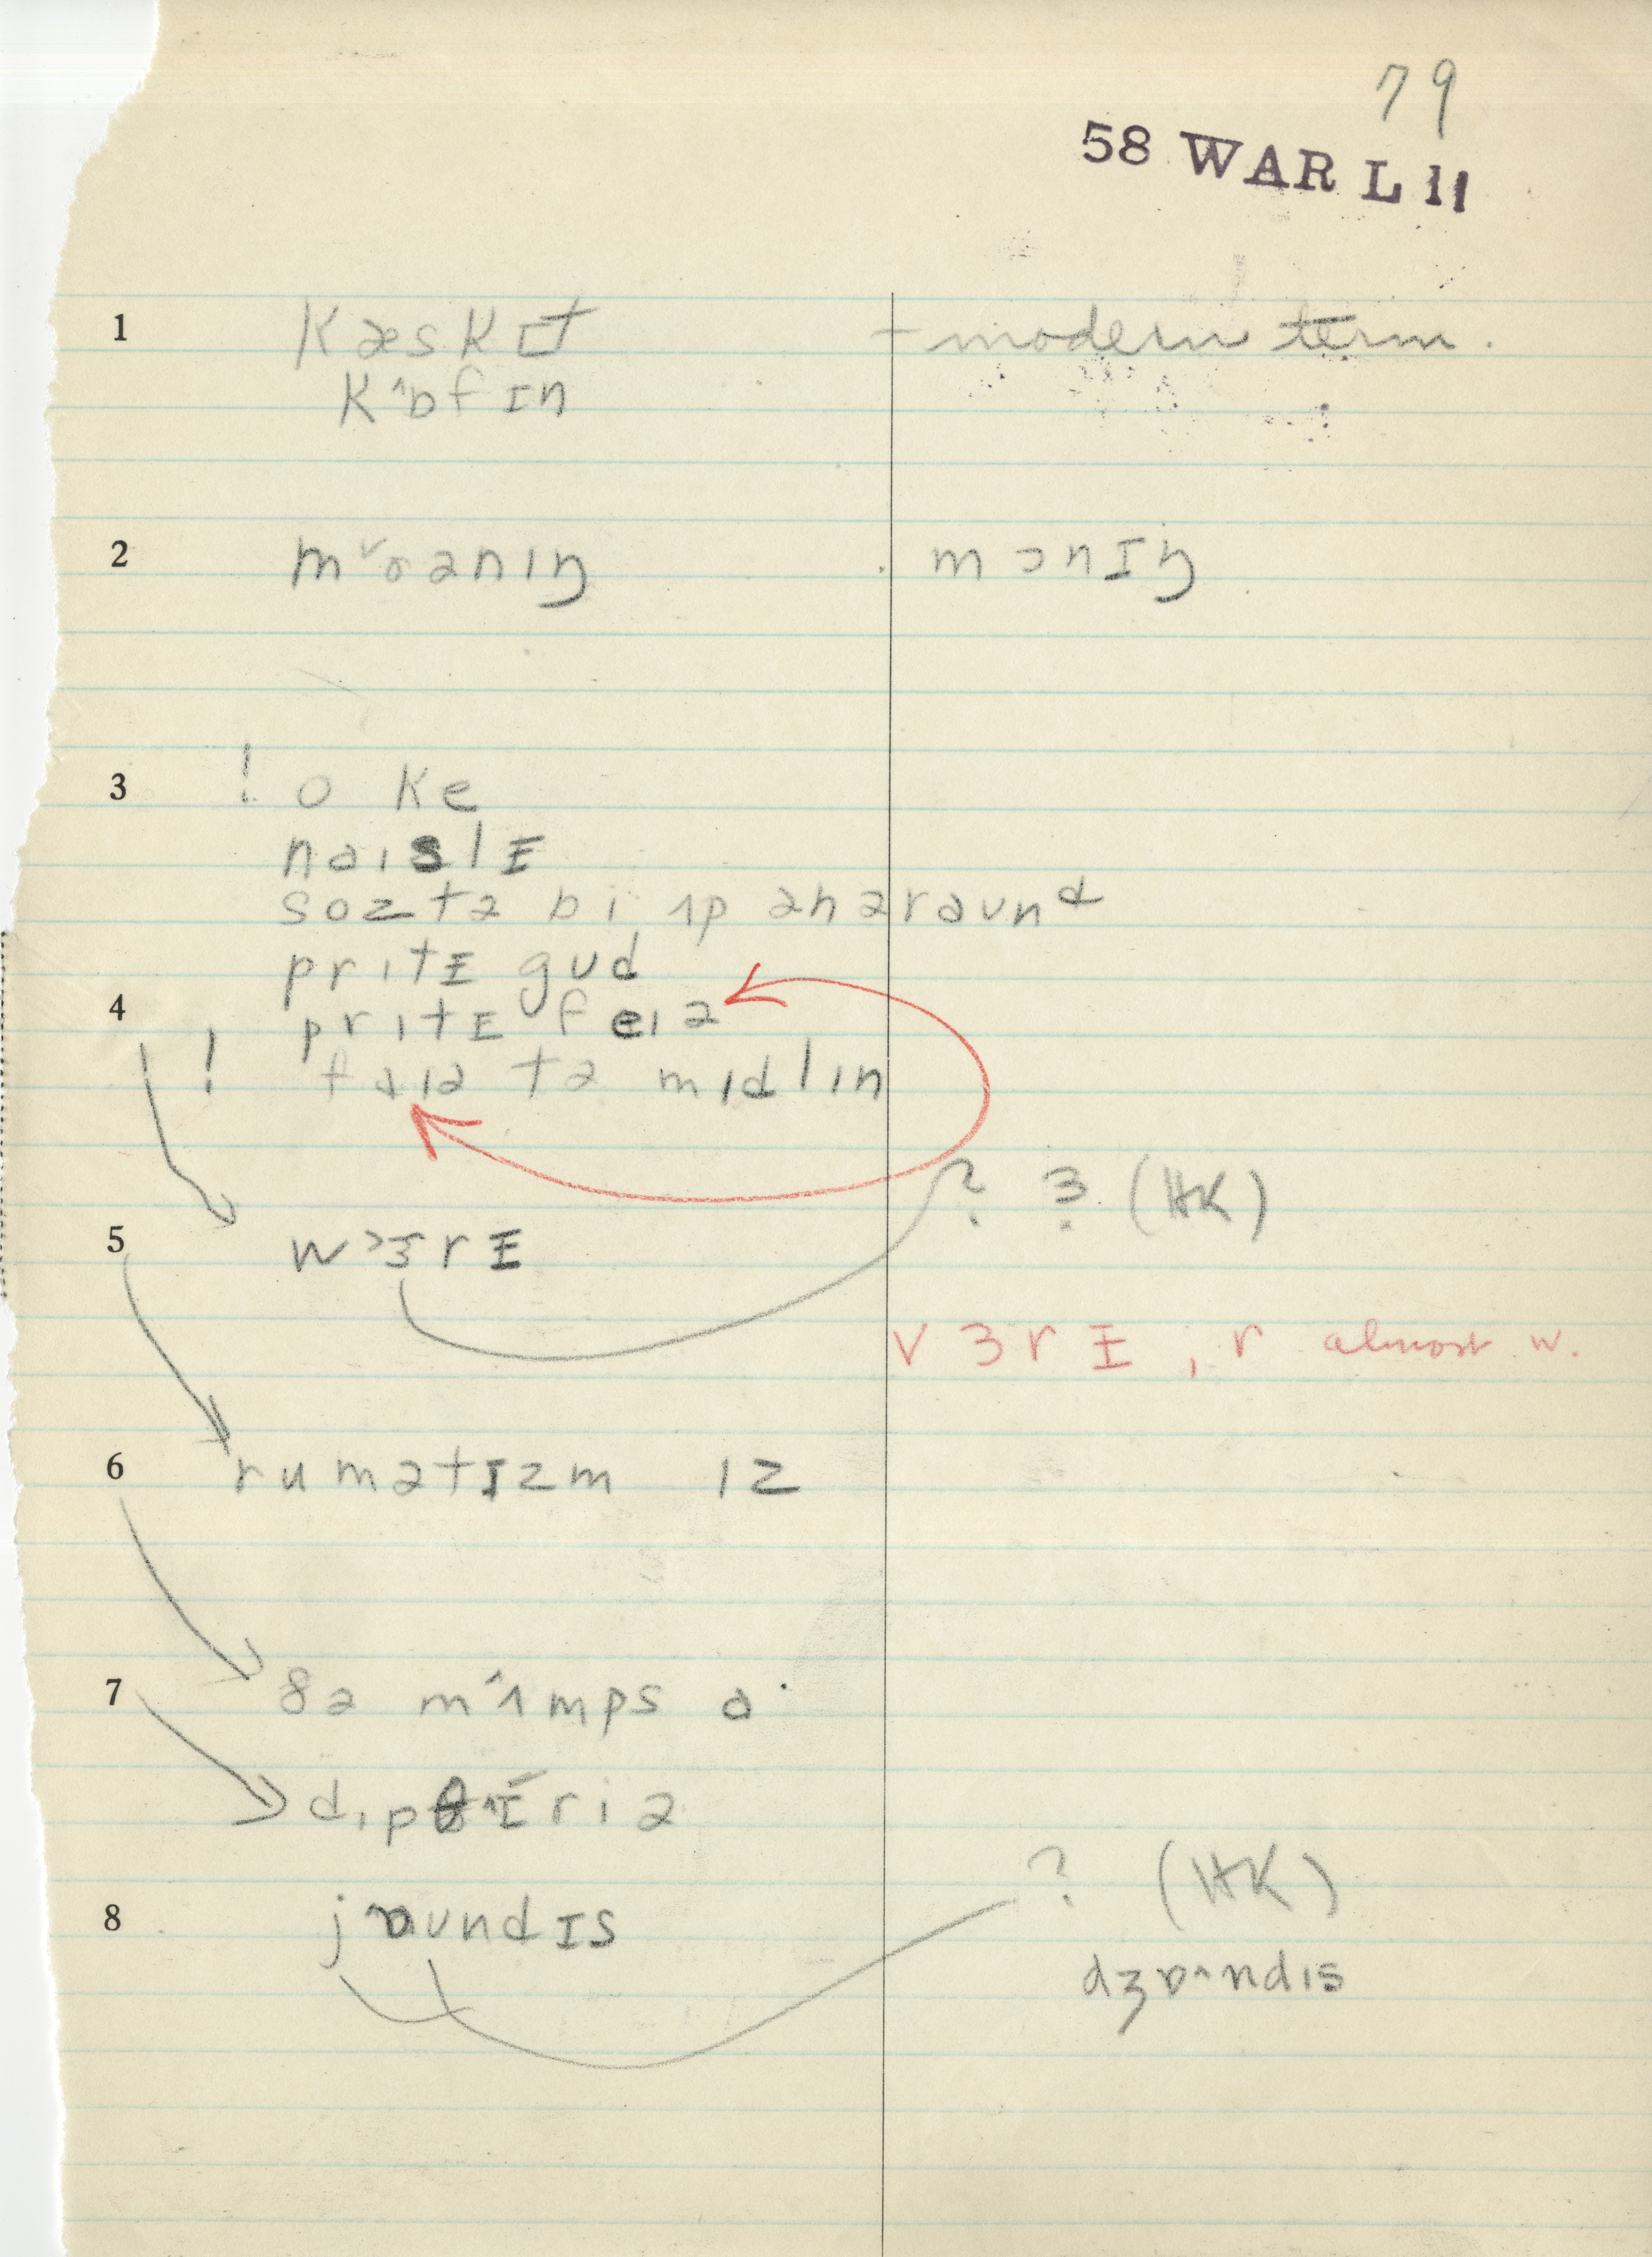 79
58 WAR L 11
1 kæskɪt – modern term.
k^ɒfɪn
2 m˅ɒənıŋ mɔnɪŋ
3 ! o ke
naıslɪ
soztə bi ʌp ənəraund
prıtɪ gud
4 prıtɪ feıə
! faıə tə mıdlın
? ɜ (HK)
5 w>ɜrɪ
vɜrɪ, r almost w.
6 rumətɪzm ız
7 ðə m^ʌmps ɑ·
dıpθ^ɪriə
8 jɒundɪs ? (HK)
dʒɒ^ndıs